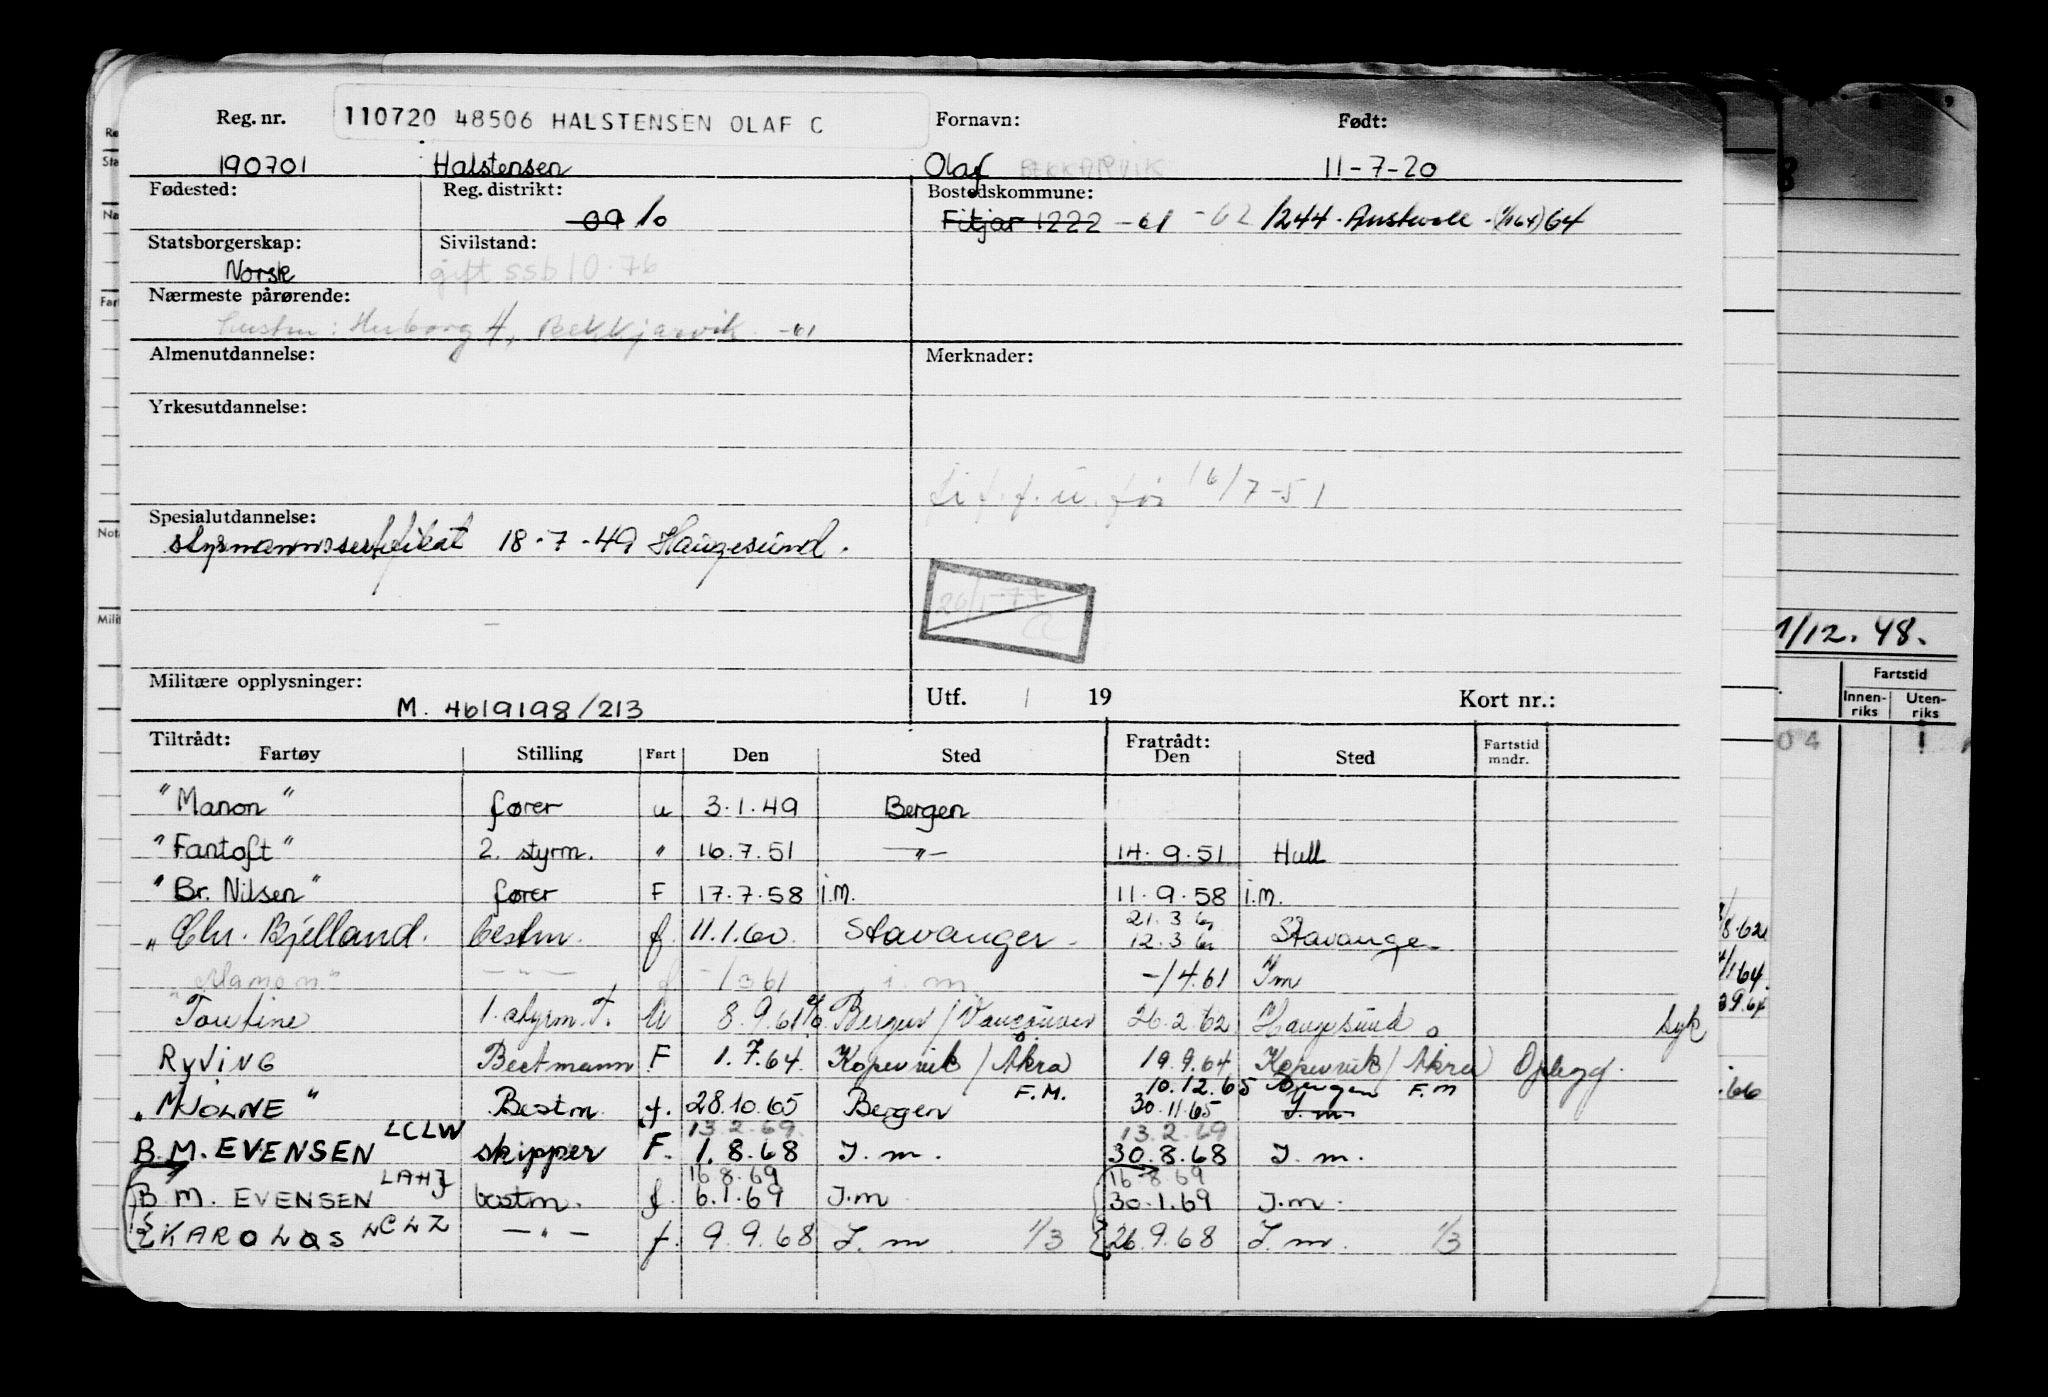 Reg. nr. 110720 48506 HALSTENSEN OLAF C Fornavn: Født:
190701 Halstensen Olaf BEKKARVIK 11-7-20
Fødested: Reg. distrikt: Bostedskommune:
09 10 Fitjar 1222 -61 -62 1244. Austevoll - 64
Statsborgerskap: Sivilstand:
Norsk gift ssb 10.76
Nærmeste pårørende:
hustru: H, Bekkjarvik -61
Almenutdannelse: Merknader:
Yrkesutdannelse:
f. u. før 16/7-51
Spesialutdannelse:
styrmannssertifikat 18-7-49 Haugesund.
26/1-77
Militære opplysninger: Utf. / 19 Kort nr.:
M. 4619198/213
Tiltrådt: Fratrådt:
Fartøy Stilling Fart Den Sted Den Sted Fartstid mndr.
"Manon" fører u 3.1.49 Bergen
"Fantoft" 2. styrm. " 16.7.51 —"— 14.9.51 Hull
"Br. Nilsen" fører F 17.7.58 i.M. 11.9.58 i.M.
21.3 61
"Chr. Bjelland. bestm. f. 11.1.60 Stavanger - 12.3 61 Stavanger
"Manon" —"— f -/3 61 i. m. -/4.61 Im
Toutine 1. styrm. T. U 8.9.61 Bergen / Vancouver 26.2.62 Haugesund syk
RYVING Bestmann F 1.7.64. Kopervik / Åkra 19.9.64 Kopervik / Åkra Oplegg.
F.M. 10.12.65 Bergen F.M
"MJOLNE" Bestm. f. 28.10.65 Bergen 30.11.65 I.m
LCLW 13.2.69. 13.2.69
B.M. EVENSEN skipper F. 1.8.68 I.m. 30.8.68 I.m.
LAHJ 16.8.69 16.8.69
B.M. EVENSEN bestm. f. 6.1.69 I.m 30.1.69 I.m.
KAROLOS LCLZ —"— f. 9.9.68 I.m. 1/3 26.9.68 I.m. 1/3
1/12.48.
Fartstid
Innenriks Utenriks
04
8.62
1/64
39.64
.66